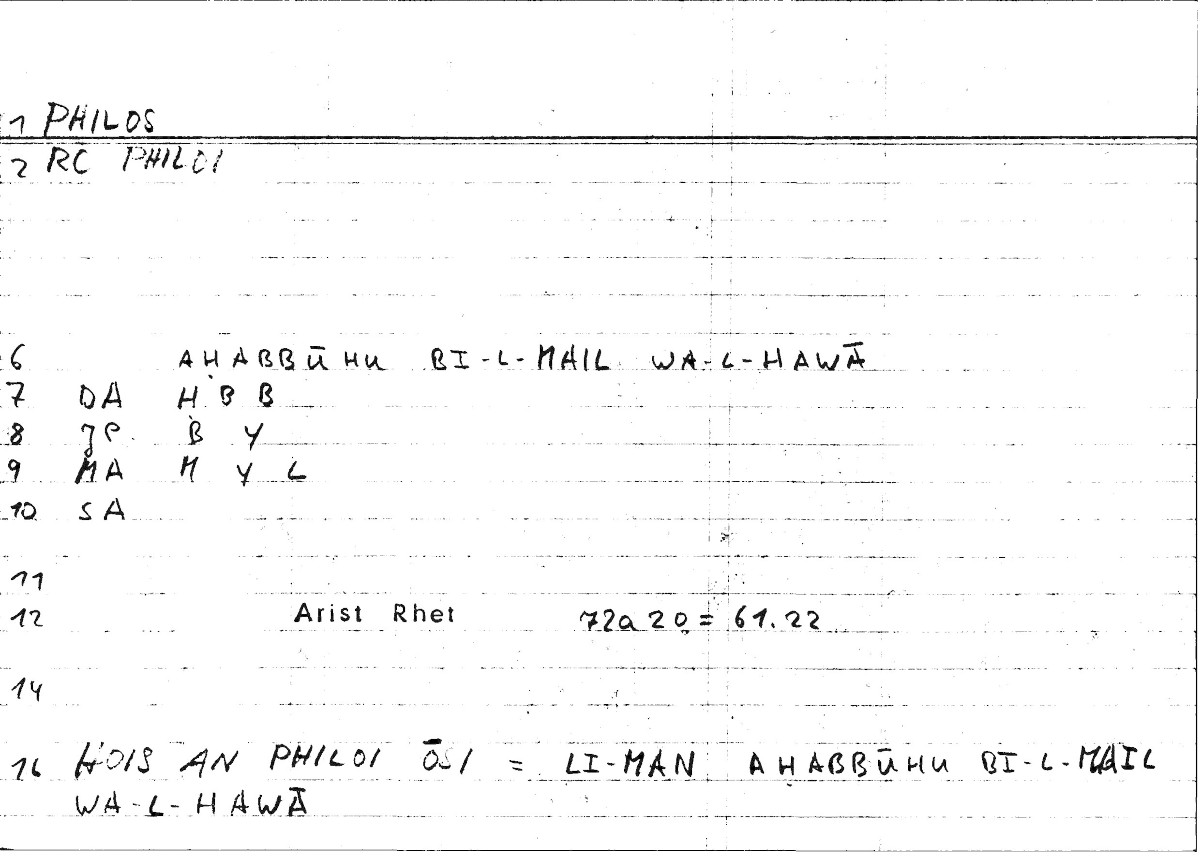 1 PHILOS
2 RC PHILOI
6 AḤABBŪHU BI-L-MAIL WA-L-HAWĀ
7 DA Ḥ B B
8 JP B Y
9 MA M Y L
10 SA
11
12 Arist Rhet 72a20 = 61.22
14
16 HOIS AN PHILOI ŌSI = LI-MAN AHABBŪHU BI-L-MAIL
WA-L-HAWĀ